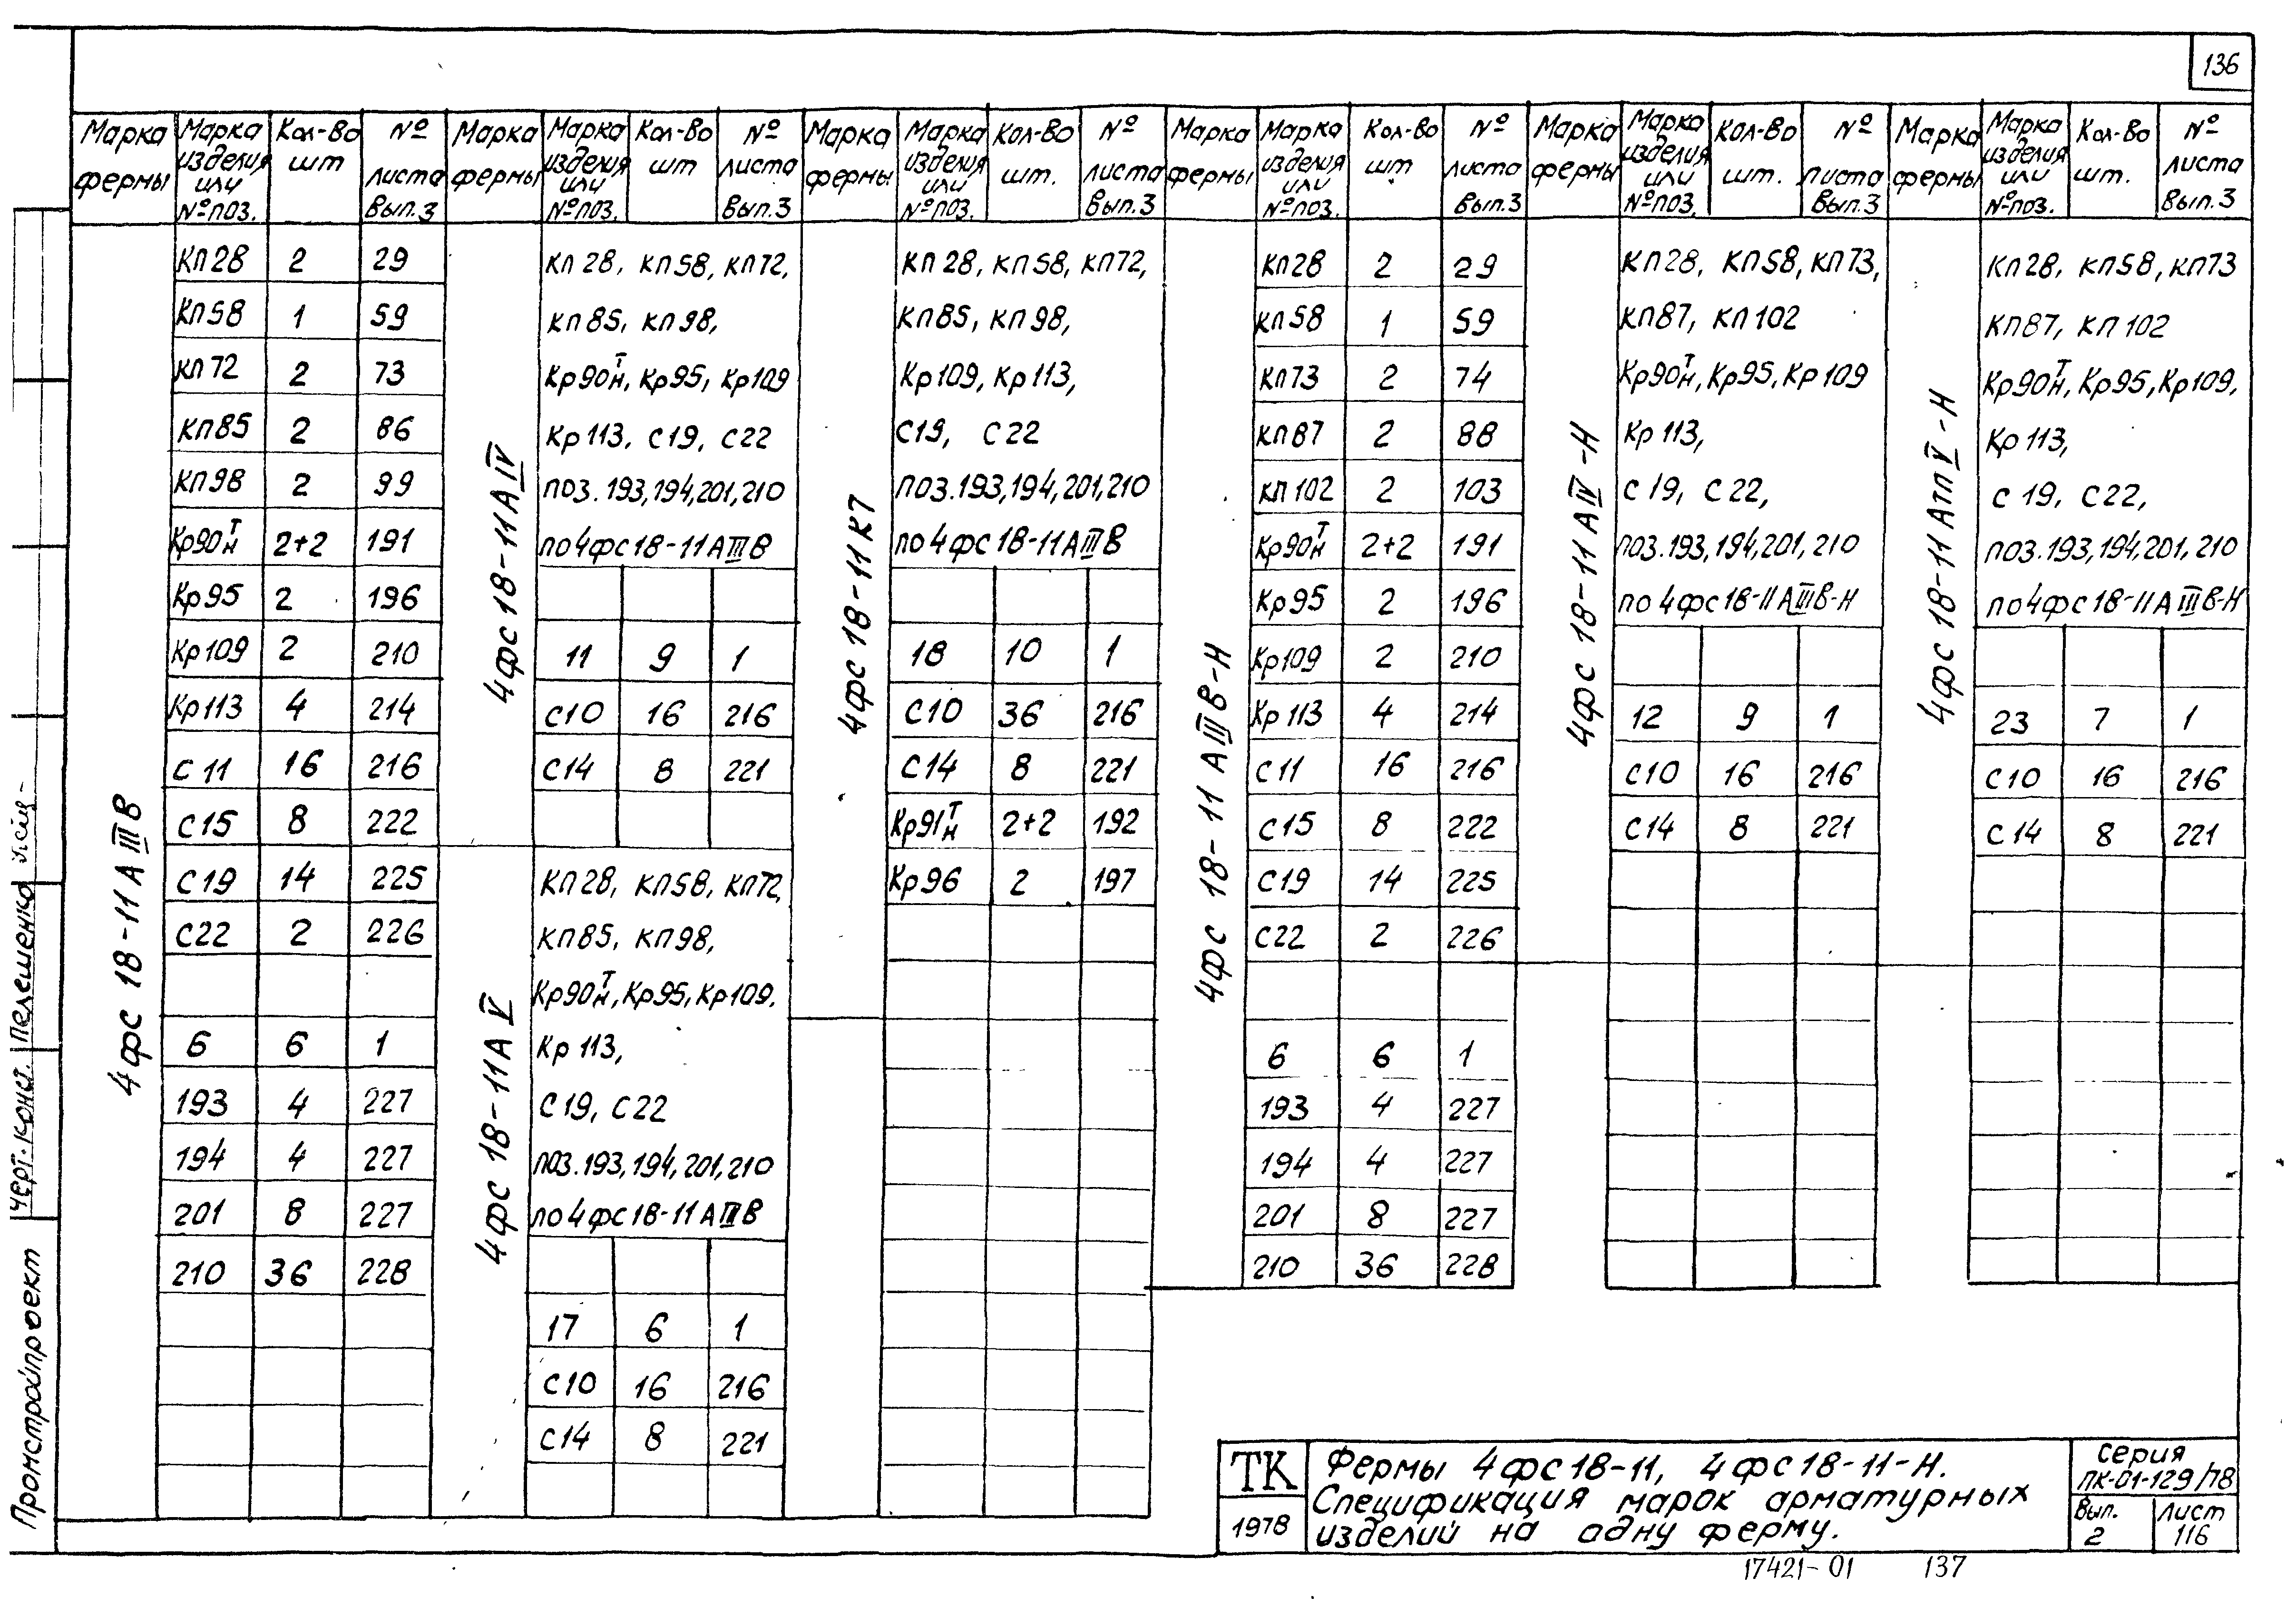 136
Марка фермы | Марка изделия или № поз. | Кол-во шт | № листа Вып.3
4фс 18-11АIIIВ
КП28 2 29
КП58 1 59
КП72 2 73
КП85 2 86
КП98 2 99
Кр90Т/Н 2+2 191
Кр95 2 196
Кр109 2 210
Кр113 4 214
С11 16 216
С15 8 222
С19 14 225
С22 2 226
6 6 1
193 4 227
194 4 227
201 8 227
210 36 228
Марка фермы | Марка изделия или № поз. | Кол-во шт | № листа Вып.3
4фс 18-11АIV
КП28, КП58, КП72,
КП85, КП98,
Кр90Т/Н, Кр95, Кр109
Кр113, С19, С22
поз.193,194,201,210
по 4фс18-11АIIIВ
11 9 1
С10 16 216
С14 8 221
4фс 18-11АV
КП28, КП58, КП72,
КП85, КП98,
Кр90Т/Н, Кр95, Кр109.
Кр113,
С19, С22
поз.193,194,201,210
по 4фс18-11АIIIВ
17 6 1
С10 16 216
С14 8 221
Марка фермы | Марка изделия или № поз. | Кол-во шт. | № листа Вып.3
4фс 18-11К7
КП28, КП58, КП72,
КП85, КП98,
Кр109, Кр113,
С19, С22
поз.193,194,201,210
по 4фс18-11АIIIВ
18 10 1
С10 36 216
С14 8 221
Кр91Т/Н 2+2 192
Кр96 2 197
Марка фермы | Марка изделия или № поз. | Кол-во шт | № листа Вып.3
4фс 18-11 АIIIВ-Н
КП28 2 29
КП58 1 59
КП73 2 74
КП87 2 88
КП102 2 103
Кр90Т/Н 2+2 191
Кр95 2 196
Кр109 2 210
Кр113 4 214
С11 16 216
С15 8 222
С19 14 225
С22 2 226
6 6 1
193 4 227
194 4 227
201 8 227
210 36 228
Марка фермы | Марка изделия или № поз. | Кол-во шт. | № листа Вып.3
4фс 18-11АIV-Н
КП28, КП58, КП73,
КП87, КП102
Кр90Т/Н, Кр95, Кр109
Кр113,
С19, С22,
поз.193,194,201,210
по 4фс18-11АIIIВ-Н
12 9 1
С10 16 216
С14 8 221
Марка фермы | Марка изделия или № поз. | Кол-во шт. | № листа Вып.3
4фс 18-11АтпV-Н
КП28, КП58, КП73
КП87, КП102
Кр90Т/Н, Кр95, Кр109,
Кр113,
С19, С22,
поз.193,194,201,210
по 4фс18-11АIIIВ-Н
23 7 1
С10 16 216
С14 8 221
Черт. конст. Пелешенко
Промстройпроект
ТК
1978
Фермы 4фс18-11, 4фс18-11-Н.
Спецификация марок арматурных
изделий на одну ферму.
серия
ПК-01-129/78
Вып. 2
Лист 116
17421-01 137